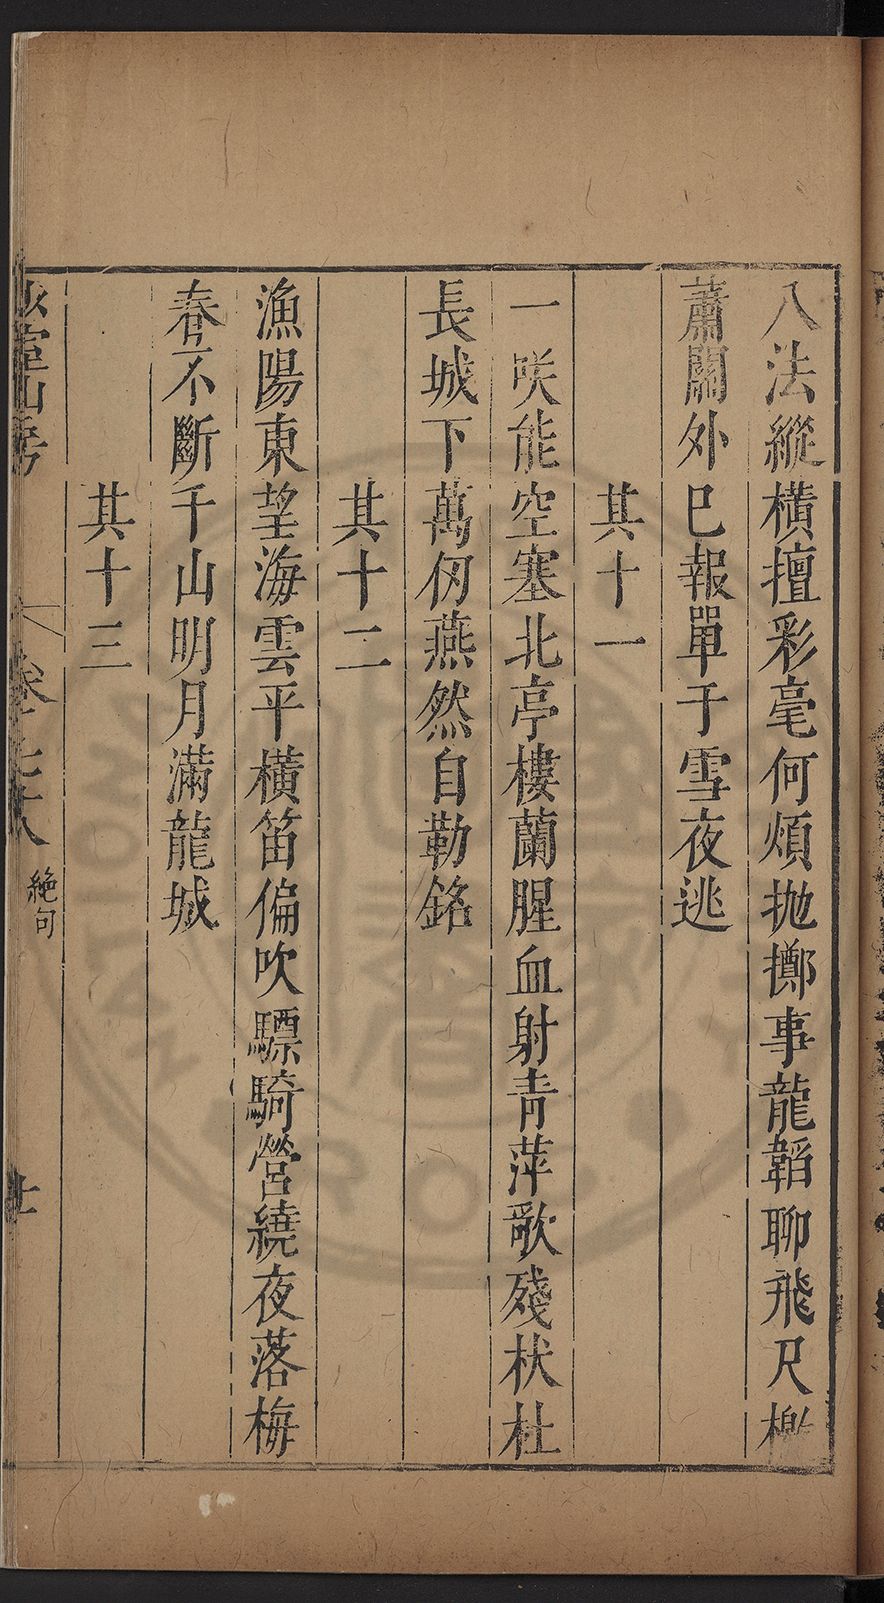 八法縱橫擅彩毫何煩拋擲事龍韜聊飛尺檄
蕭關外已報單于雪夜逃
其十一
一咲能空塞北亭樓蘭腥血射青萍歌殘杕杜
長城下萬仞燕然自勒銘
其十二
漁陽東望海雲平橫笛偏吹驃騎營繞夜落梅
春不斷千山明月滿龍城
其十三
室山房
卷七十八
絶句